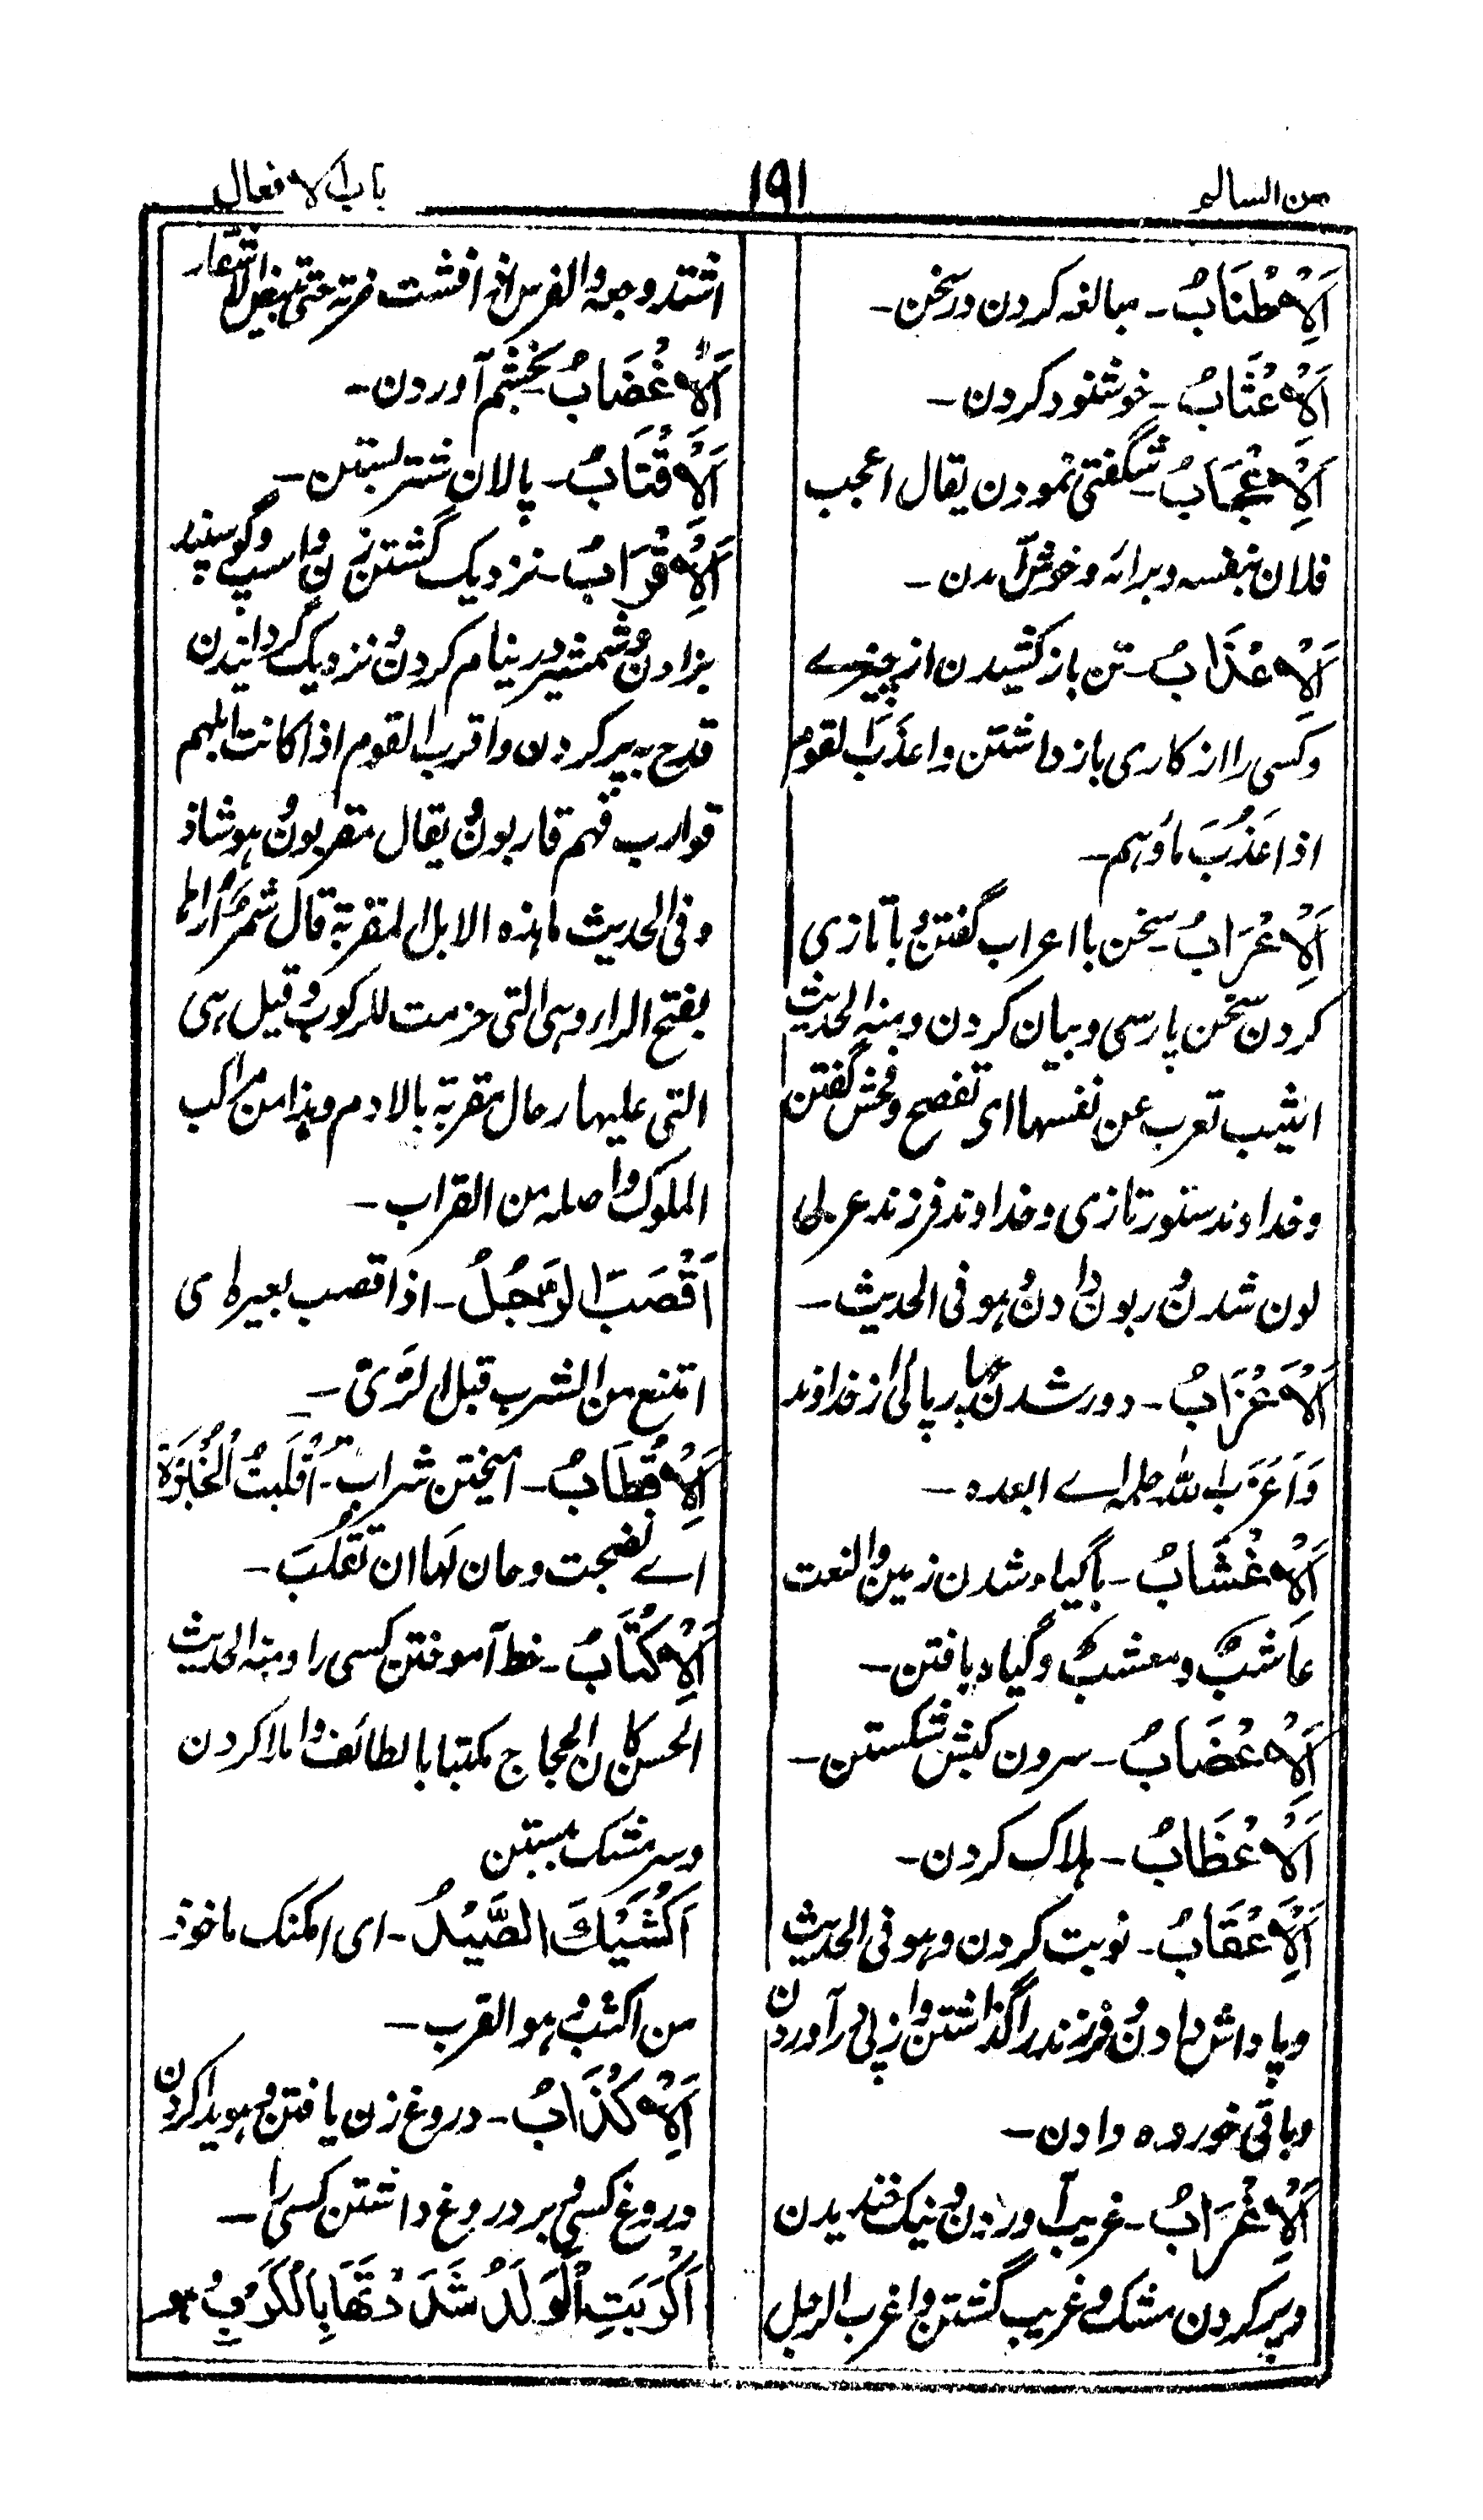 من السالم
۱۹۱
باب الافعال
اَلْاِطْنَابُ - مبالغہ کردن در سخن -
اَلْاِعْتَابُ - خوشنود کردن -
اَلْاِعْجَابُ - شگفتی نمودن یقال اعجب
فلان بنفسہ وبرائہ وخوش آمدن -
اَلْاِعْذَابُ - تن باز کشیدن از چیزے
وکسی را از کاری باز داشتن واعذَبَ القوم
اذا عَذُبَ ماؤہم -
اَلْاِعْرَابُ - سخن با اعراب گفتن وبا تازی
کردن سخن پارسی وبیان کردن ومنہ الحدیث
الثیب تعرب عن نفسہا ای تفصح وفحش گفتن
وخداوند ستور تازی وخداوند فرزند عربی
لون شدن وربون دادن وہو فی الحدیث -
اَلْاِعْزَابُ - دور شدن چارپای از خداوند
وَاَعْزَبَ اللہ حلمہ اے ابعدہ -
اَلْاِعْشَابُ - باگیاہ شدن زمین والنعت
عاشبٌ ومعشبٌ وگیاہ یافتن -
اَلْاِعْضَابُ - سرون کبش شکستن -
اَلْاِعْطَابُ - ہلاک کردن -
اَلْاِعْقَابُ - نوبت کردن وہو فی الحدیث
وپاداش دادن وفرزند را گذاشتن واز پی در آوردن
وباقی خوردہ دادن -
اَلْاِغْرَابُ - غریب آوردن ونیک خندیدن
وپر کردن مشک وغریب گشتن واغرب الرجل
اشتد وجعہ والفرس اذا فشت غرتہ حتی تبیض الاشفار
اَلْاِغْضَابُ - بخشم آوردن -
اَلْاِقْتَابُ - پالان شتر بستن -
اَلْاِقْرَابُ - نزدیک گشتن زن واسپ وگوسپند
بزادن وشمشیر در نیام کردن ونزدیک گردانیدن
قدح بہ پر کردن واقرب القوم اذا کانت ابلہم
قوارب فہم قاربون یقال مقربون وہو شاذ
وفی الحدیث ما ہذہ الابل المقربۃ قال شمر اراہا
بفتح الراء وہی التی حزمت للرکوب وقیل ہی
التی علیہا رحال مقربۃ بالادم وہذا من مراکب
الملوک واصلہ من القراب -
اَقْصَبَ الرَّجُلُ - اذا قصب بعیرہ ای
امتنع من الشرب قبل الرّیّ -
اَلْاِقْطَابُ - آمیختن شراب - اَقْلَبَتِ الْخُبْزَۃُ
اے نضجت وحان لہا ان تُقْلَبَ -
اَلْاِکْتَابُ - خط آموختن کسی را ومنہ الحدیث
الحسن کان الحجاج مکتبا بالطائف واملا کردن
وسر مشک بستن
اَکْثَبَکَ الصَّیْدُ - ای امکنک ماخوذ
من الکثب وہو القرب -
اَلْاِکْذَابُ - دروغ زن یافتن وہویدا کردن
دروغ کسی وبر دروغ داشتن کسی را -
اَکْرَبَتِ الْوَلَدُ شَدَدْتَهَا بِالْکَرَبِ وہو